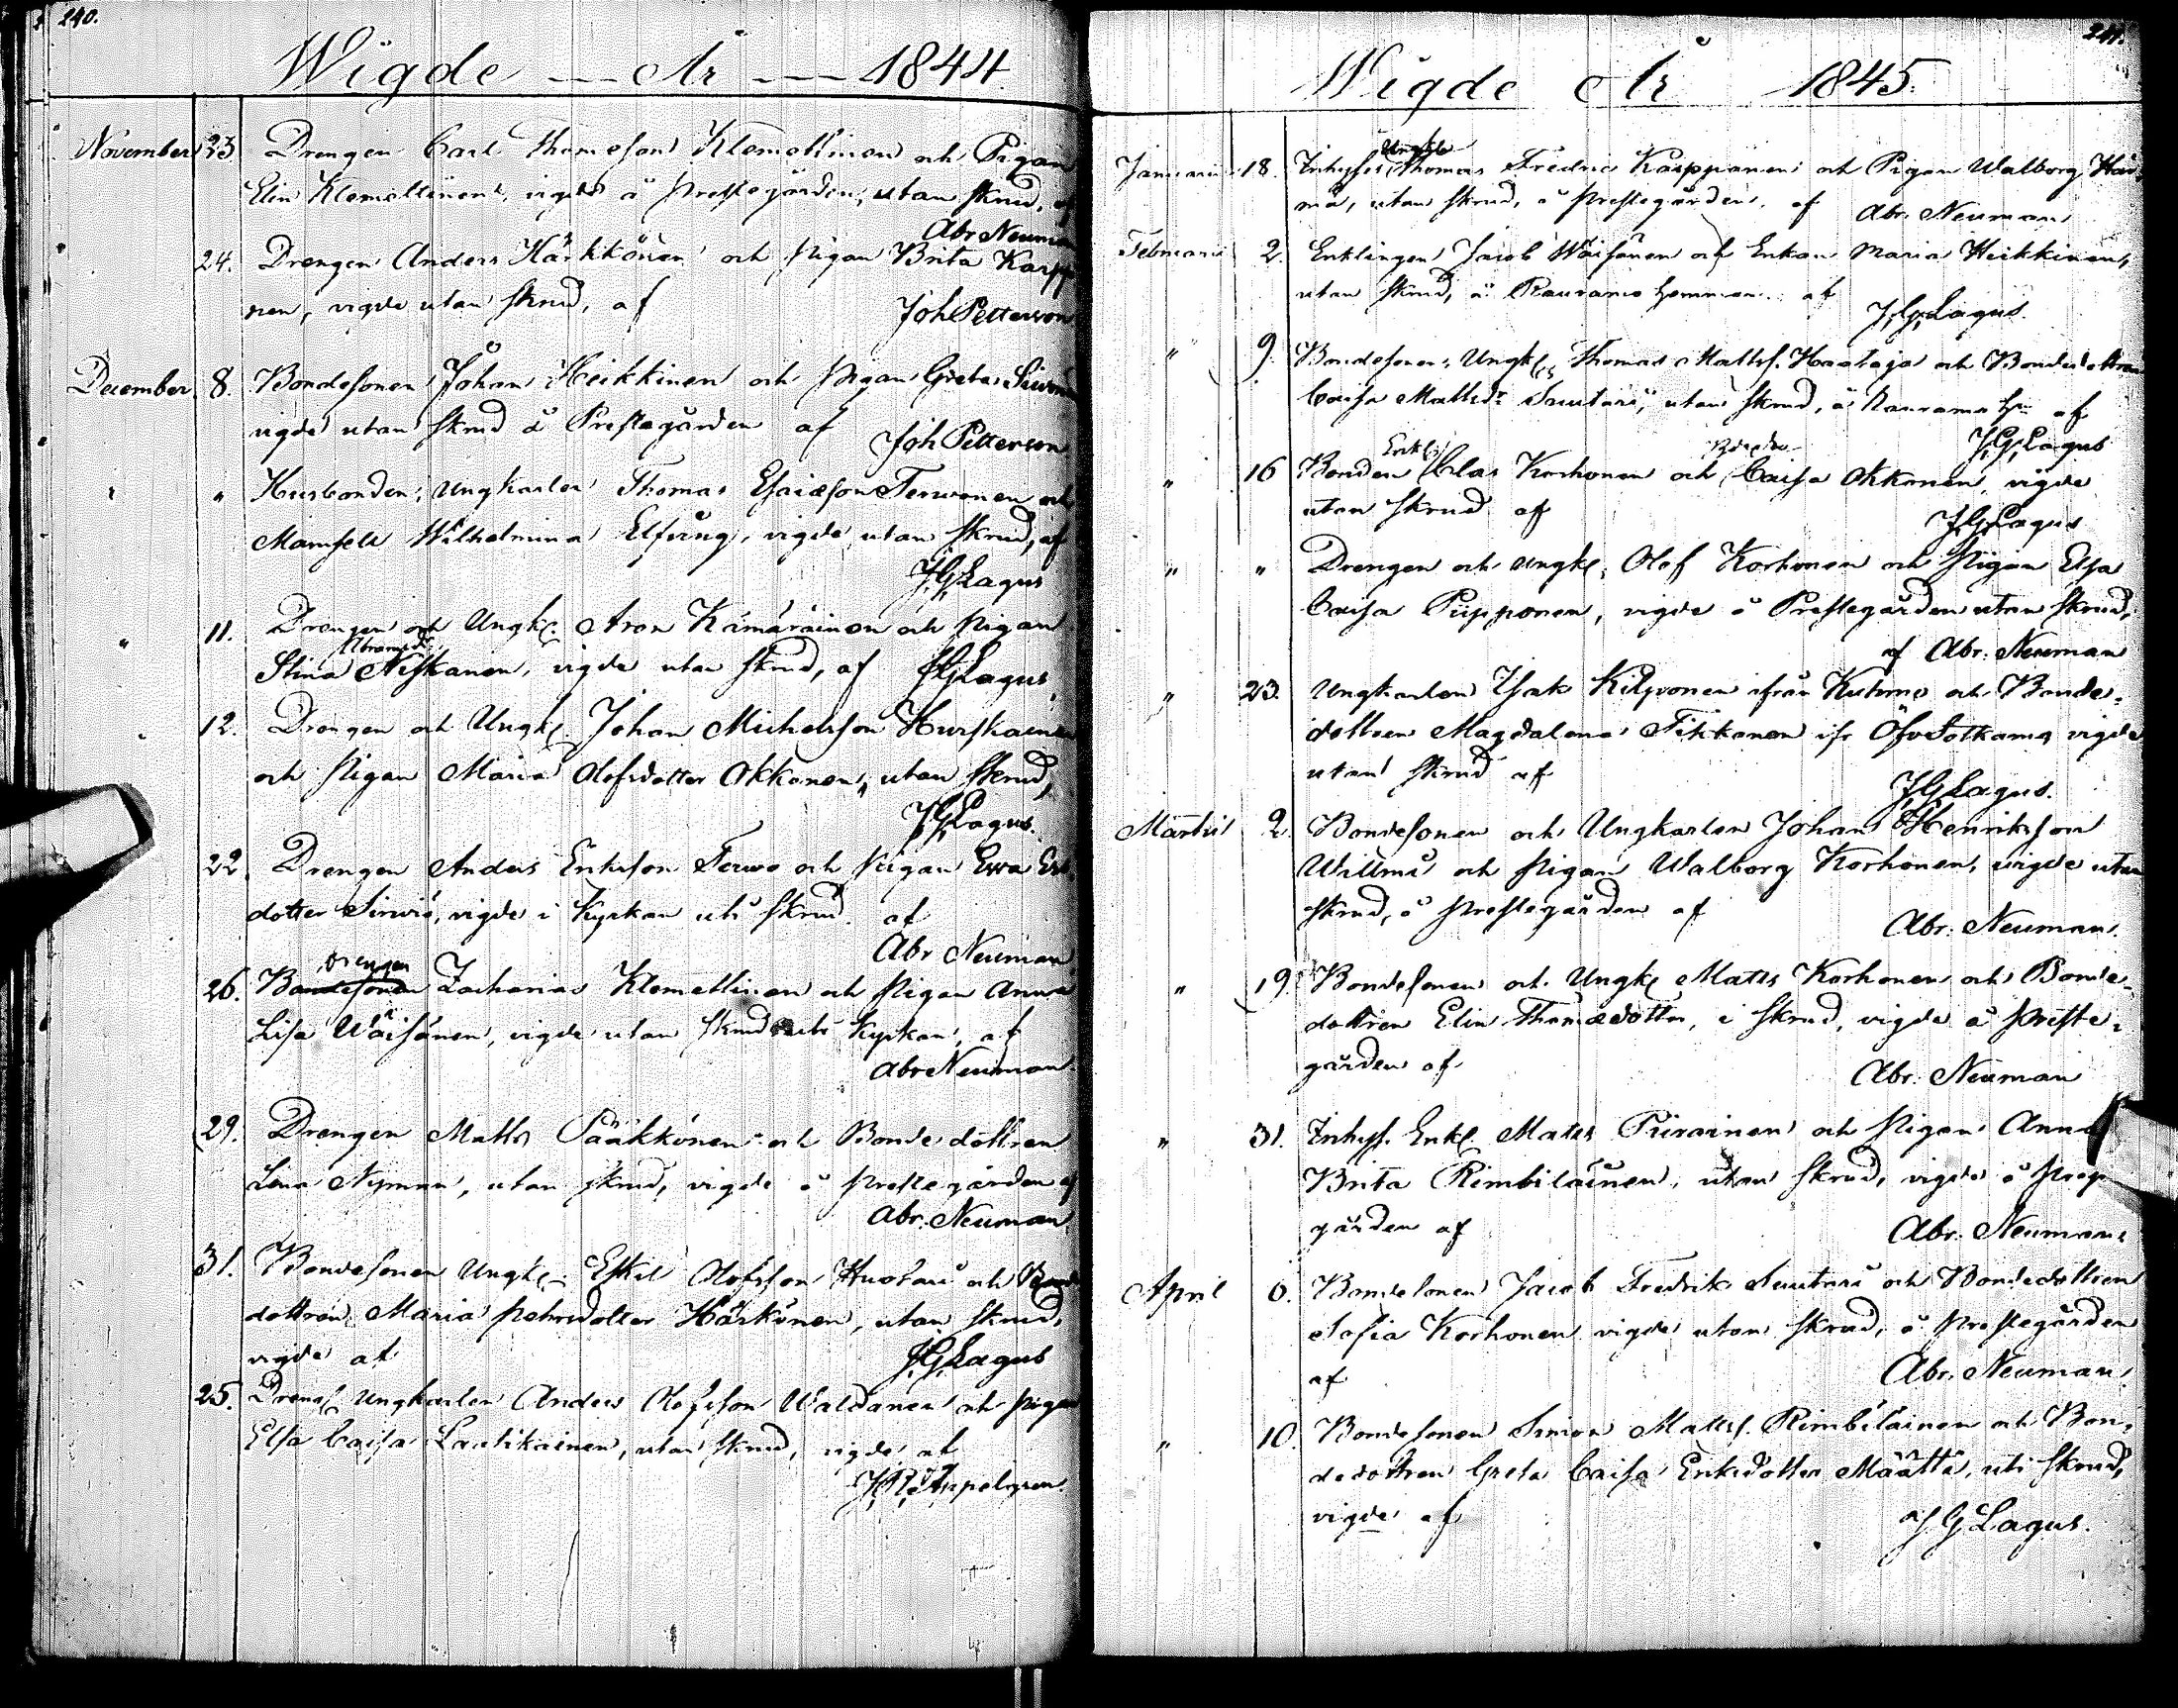 240.
Wigde — År — 1844.
November 23. Drengen Carl Thomeson Klemettinen och Pigan
Elin Klemettinen, vigde å Prestegården, utan skrud, af
Abr Neuman
24. Drengen Anders Härkkönen och Pigan Brita Karpp
nen, vigde utan skrud, af
Joh Petterson
December 8. Bondesonen Johan Heikkinen och Pigan Greta
vigde utan skrud å Prestegården af
Joh Petterson
" " Husbonden, Ungkarlen Thomas Esaieson Terwonen och
Mamsell Wilhelmina Elfving, vigde utan skrud, af
J,G,Lagus
" 11. Drengen och Ungk. Aron Kämäräinen och Pigan
Abramsd.
Stina Niskanen, vigde utan skrud, af JGLagus
12. Drengen och Ungk. Johan Michelsson Hurskainen
och Pigan Maria Olofsdotter Okkonen, utan skrud,
JGLagus.
22. Drengen Anders Eriksson Terwo och Pigan Ewa Er
dotter Sirviö, vigde i Kyrkan uti skrud af
Abr Neuman
Drengen
26. Bondesonen Zacharias Klemettinen och Pigan Anna
Lisa Wäisänen, vigde utan skrud uti Kyrkan, af
Abr Neuman
29. Drengen Matts Pääkkönen och Bondedottren
Lena Nyman, utan skrud, vigde å Prestegården af
Abr. Neuman
31. Bondesonen Ungk. Eskil Olofsson Huotari och Bonde
dottren Maria Petersdotter Härkönen, utan skrud,
vigde af JGLagus
25. Dreng. Ungkarlen Anders Olofsson Waldanen och Pigan
Elsa Caisa Lautikainen, utan skrud, vigde af
Appelgren
241.
Wigde År 1845.
Ungk
Januarii 18. Inhyses Thomas Fredric Karppanen och Pigan Walborg Här
mä, utan skrud, å Prestegården af Abr. Neuman
Februarii 2. Enklingen Jacob Wäisänen och Enkan Maria Heikkinen,
utan skrud, å Rauramo hemman af
J,G,Lagus.
" 9. Bondesonen, Ungk. Thomas Mattss. Haataja och Bondedottren
Caisa Mattsdr Suutari, utan skrud, å Rauramo hn af
J,G,Lagus
Enkl.
" 16 Bonden Clas Korhonen och Caisa Okkonen, vigde
utan skrud af
JGLagus
" " Drengen och Ungk. Olof Korhonen och Pigan Elsa
Caisa Piipponen, vigde å Prestegården utan skrud,
af Abr. Neuman
" 23. Ungkarlen Isak Kilponen ifrån Kuhmo och Bonde-
dottren Magdalena Tikkanen ifr ÖfvSotkamo vigde
utan skrud af
JGLagus.
Martii 2. Bondesonen och Ungkarlen Johan Henriksson
Willmi och Pigan Walborg Korhonen, vigde utan
skrud, å Prestegården af
Abr. Neuman.
" 19. Bondesonen och Ungk Matts Korhonen och Bonde-
dottren Elin Thomædotter, i skrud, vigde å Preste-
gården af
Abr. Neuman
" 31. Inhys. Enkl. Matts Piirainen och Pigan Anna
Brita Rimbiläinen, utan skrud, vigde å Prest
gården af Abr. Neuman.
April 6. Bondesonen Jacob Fredrik Suutari och Bondedottren
Sofia Korhonen vigde utan skrud, å Prestegården
af Abr. Neuman.
" 10. Bondesonen Simon Mattss. Rimbiläinen och Bon-
dedottren Greta Caisa Eriksdotter Määttä, uti skrud,
vigde af
J G Lagus.